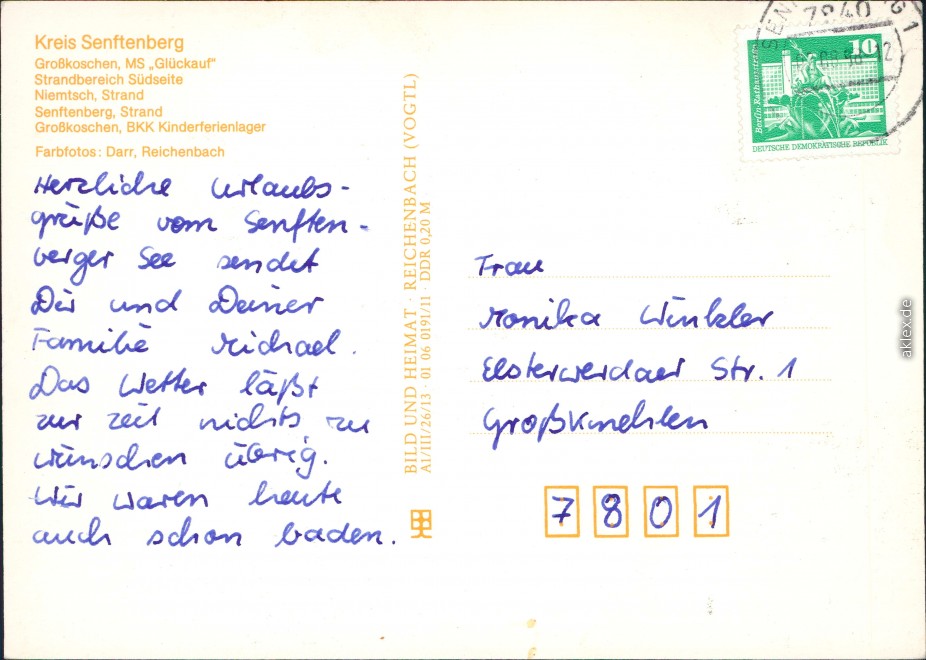 Kreis Senftenberg
Großkoschen, MS „Glückauf“
Strandbereich Südseite
Niemtsch, Strand
Senftenberg, Strand
Großkoschen, BKK Kinderferienlager
Farbfotos: Darr, Reichenbach
Herzliche Urlaubs-
grüße vom Senften-
berger See sendet
Dir und Deiner
Familie Michael.
Das Wetter läßt
zur Zeit nichts zu
wünschen übrig.
Wir waren heute
auch schon baden.
BILD UND HEIMAT · REICHENBACH (VOGTL)
A1/III/26/13 · 01 06 0191/11 · DDR 0,20 M
7840
1
10
Berlin-Rathausstraße
DEUTSCHE DEMOKRATISCHE REPUBLIK
Frau
Monika Winkler
Elsterwerdaer Str. 1
Großkmehlen
7801
aklex.de